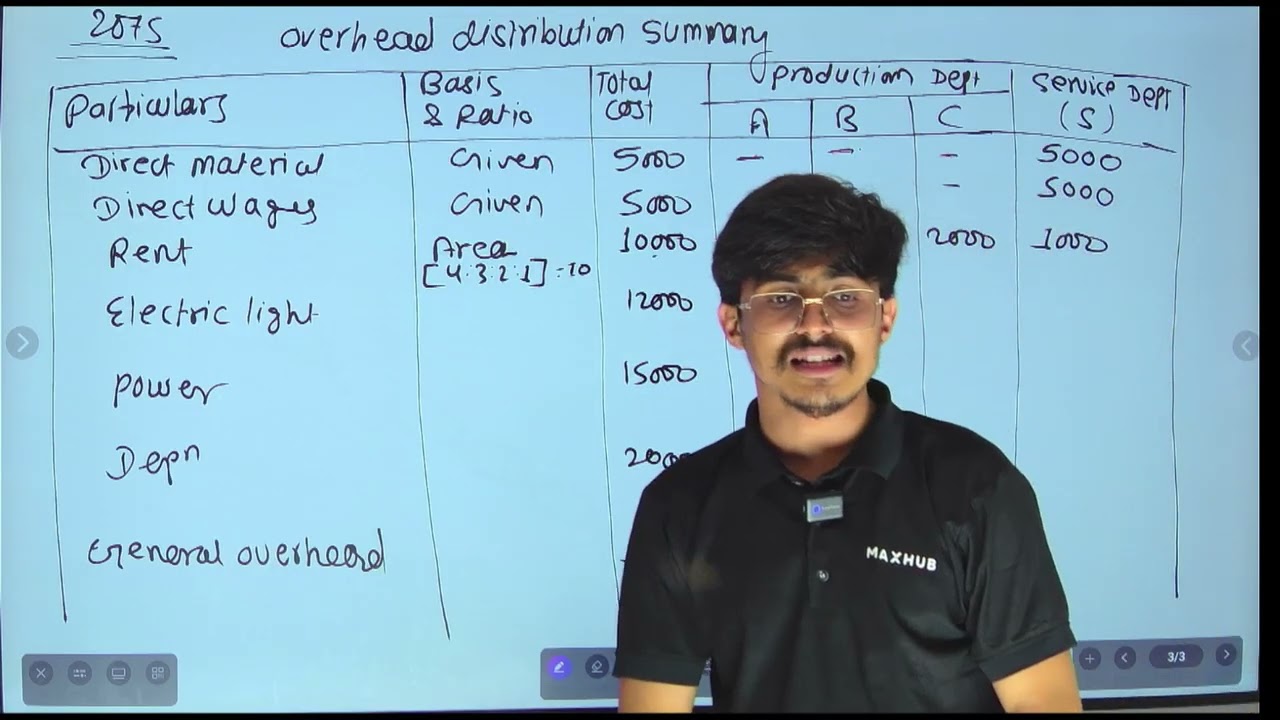 2075 overhead distribution summary
Particulars Basis & Ratio Total cost production Dept service Dept (S)
A B C
Direct material Given 5000 - - - 5000
Direct wages Given 5000 - 5000
Rent Area 10000 2000 1000
[4:3:2:1] = 10
Electric light 12000
power 15000
Depn
General overhead
MAXHUB
3/3